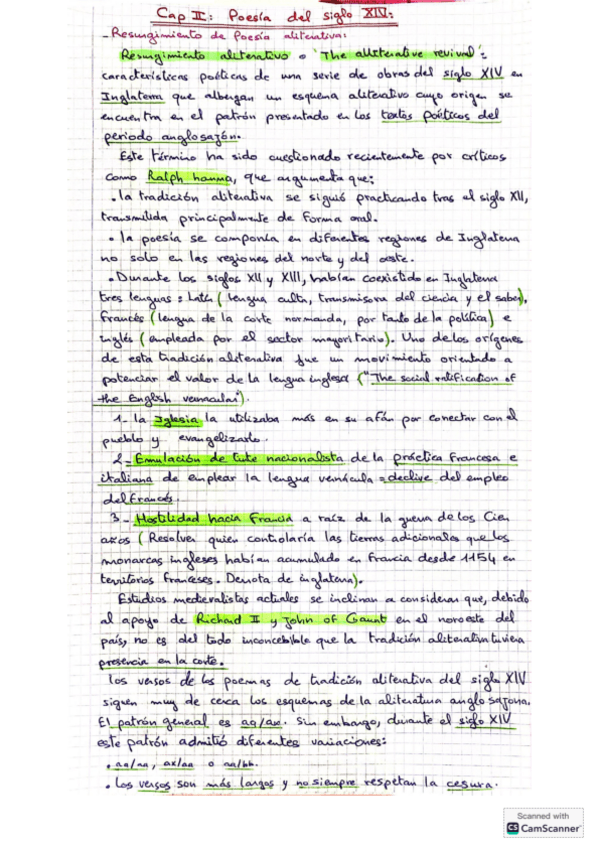 Cap II: Poesía del siglo XIV:
- Resurgimiento de Poesía aliterativa:
Resurgimiento aliterativo o 'The alliterative revival':
características poéticas de una serie de obras del siglo XIV en
Inglaterra que albergan un esquema aliterativo cuyo origen se
encuentra en el patrón presentado en los textos poéticos del
periodo anglosajón.
Este término ha sido cuestionado recientemente por críticos
como Ralph hanna, que argumenta que:
• la tradición aliterativa se siguió practicando tras el siglo XII,
transmitida principalmente de forma oral.
• la poesía se componía en diferentes regiones de Inglaterra
no solo en las regiones del norte y del oeste.
• Durante los siglos XII y XIII, habían coexistido en Inglaterra
tres lenguas: Latín (lengua culta, transmisora del ciencia y el saber),
francés (lengua de la corte normanda, por tanto de la política) e
inglés (empleada por el sector mayoritario). Uno de los orígenes
de esta tradición aliterativa fue un movimiento orientado a
potenciar el valor de la lengua inglesa ("The social ratification of
the English vernacular").
1- la Iglesia la utilizaba más en su afán por conectar con el
pueblo y evangelizarlo.
2- Emulación de tinte nacionalista de la práctica francesa e
italiana de emplear la lengua vernácula = declive del empleo
del Francés
3- Hostilidad hacia Francia a raíz de la guerra de los Cien
años (Resolver quien controlaría las tierras adicionales que los
monarcas ingleses habían acumulado en Francia desde 1154 en
territorios franceses. Derrota de inglaterra).
Estudios medievalistas actuales se inclinan a considerar que, debido
al apoyo de Richard II y John of Gaunt en el noroeste del
país, no es del todo inconcebible que la tradición aliterativa tuviera
presencia en la corte.
los versos de los poemas de tradición aliterativa del siglo XIV
siguen muy de cerca los esquemas de la aliteratura anglosajona.
El patrón general es aa/ax. Sin embargo, durante el siglo XIV
este patrón admitió diferentes variaciones:
• aa/aa, ax/aa o aa/bb.
• Los versos son más largos y no siempre respetan la cesura.
Scanned with
CS CamScanner